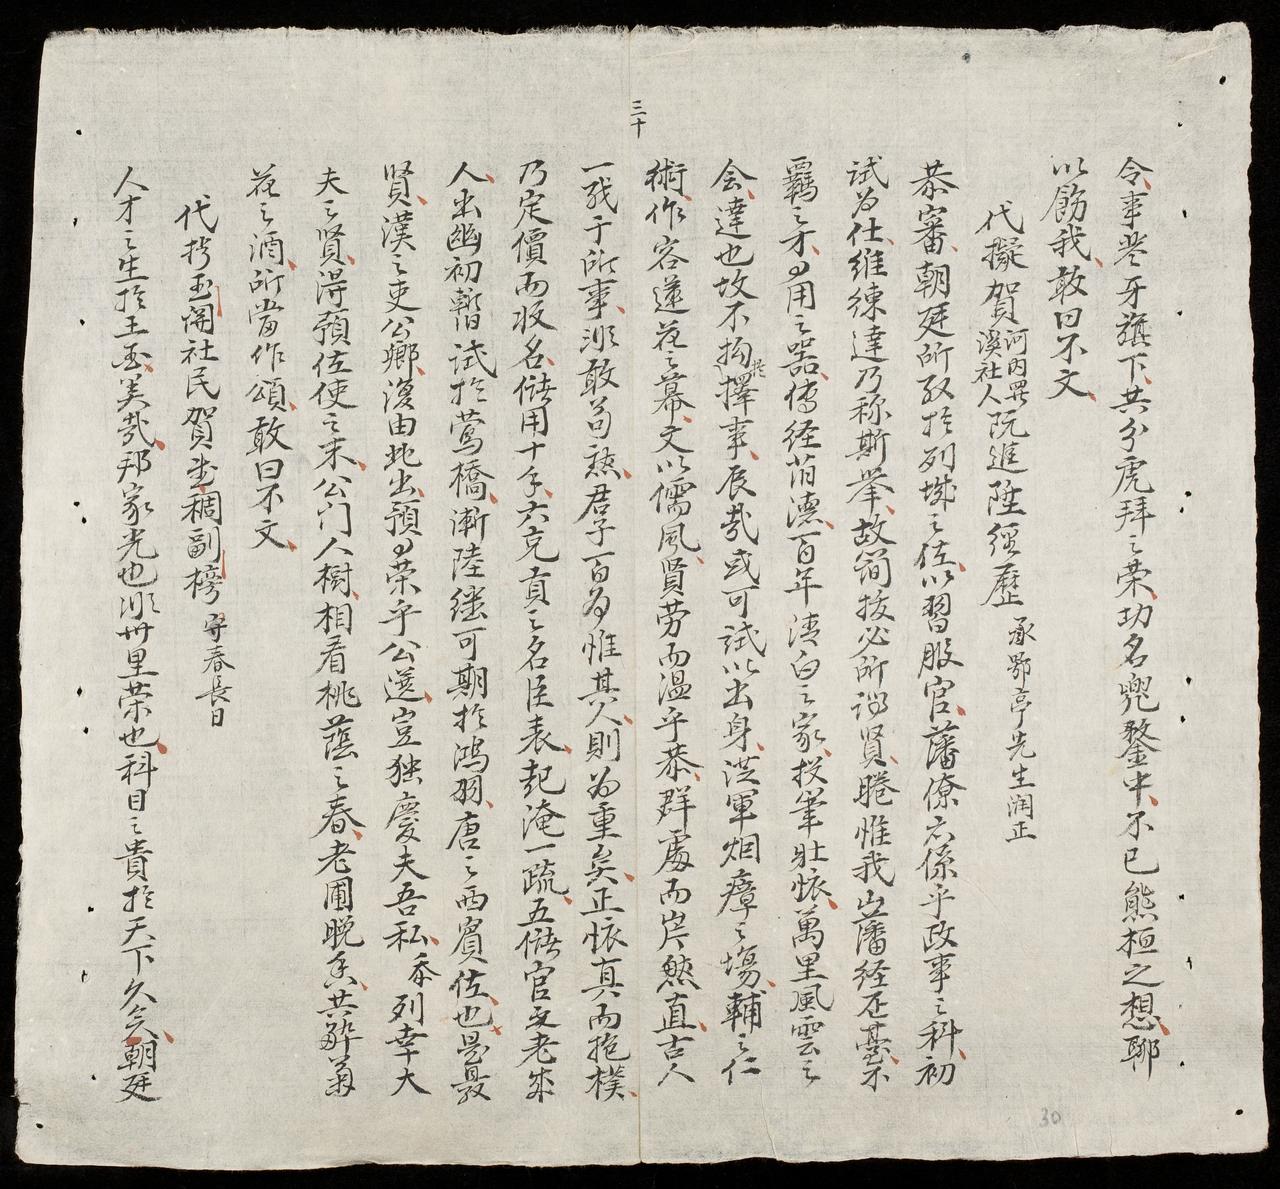 三十
令事登牙旗下共分虎拜之荣功名兜鍪中不已熊桓之想聊
以飭我敢曰不文
代擬賀河内畀溪社人阮進陞經歷 承鄂亭先生润正
恭審朝廷所致於列城之佐以習服官藩僚亦係乎政事之科初
試为仕維練達乃称斯举故簡拔必所謂賢睠惟我山藩经歴甚不
羈之才有用之器传经葄德百年清白之家投筆壯懷萬里風雲之
会達也故不拘於擇事辰哉或可試以出身洪軍烟瘴之場輔之仁
術作容蓮花之幕文以儒風賢劳而温乎恭群處而岸然直古人
一残于所事顺敢苟熟君子百为惟其人則为重矣正懷真而抱樸
乃定價而收名儲用十年六克貢之名臣表起淹一疏五儲官文老成
人出幽初暫試於鶯橋漸陸继可期於鴻羽唐之西賓佐也最
賢漢之吏公卿復由此出預有荣乎公選豈独慶夫吾私忝列幸大
夫之賢得預佐使之末公门人樹相看桃蔭之春老圃晚香共酔菊
花之酒所當作頌敢曰不文
代於玉閣社民賀李稠副榜 守春長日
人才之生於王玉美哉邦家光也顺卅里荣也科目之貴於天下久矣朝廷
30